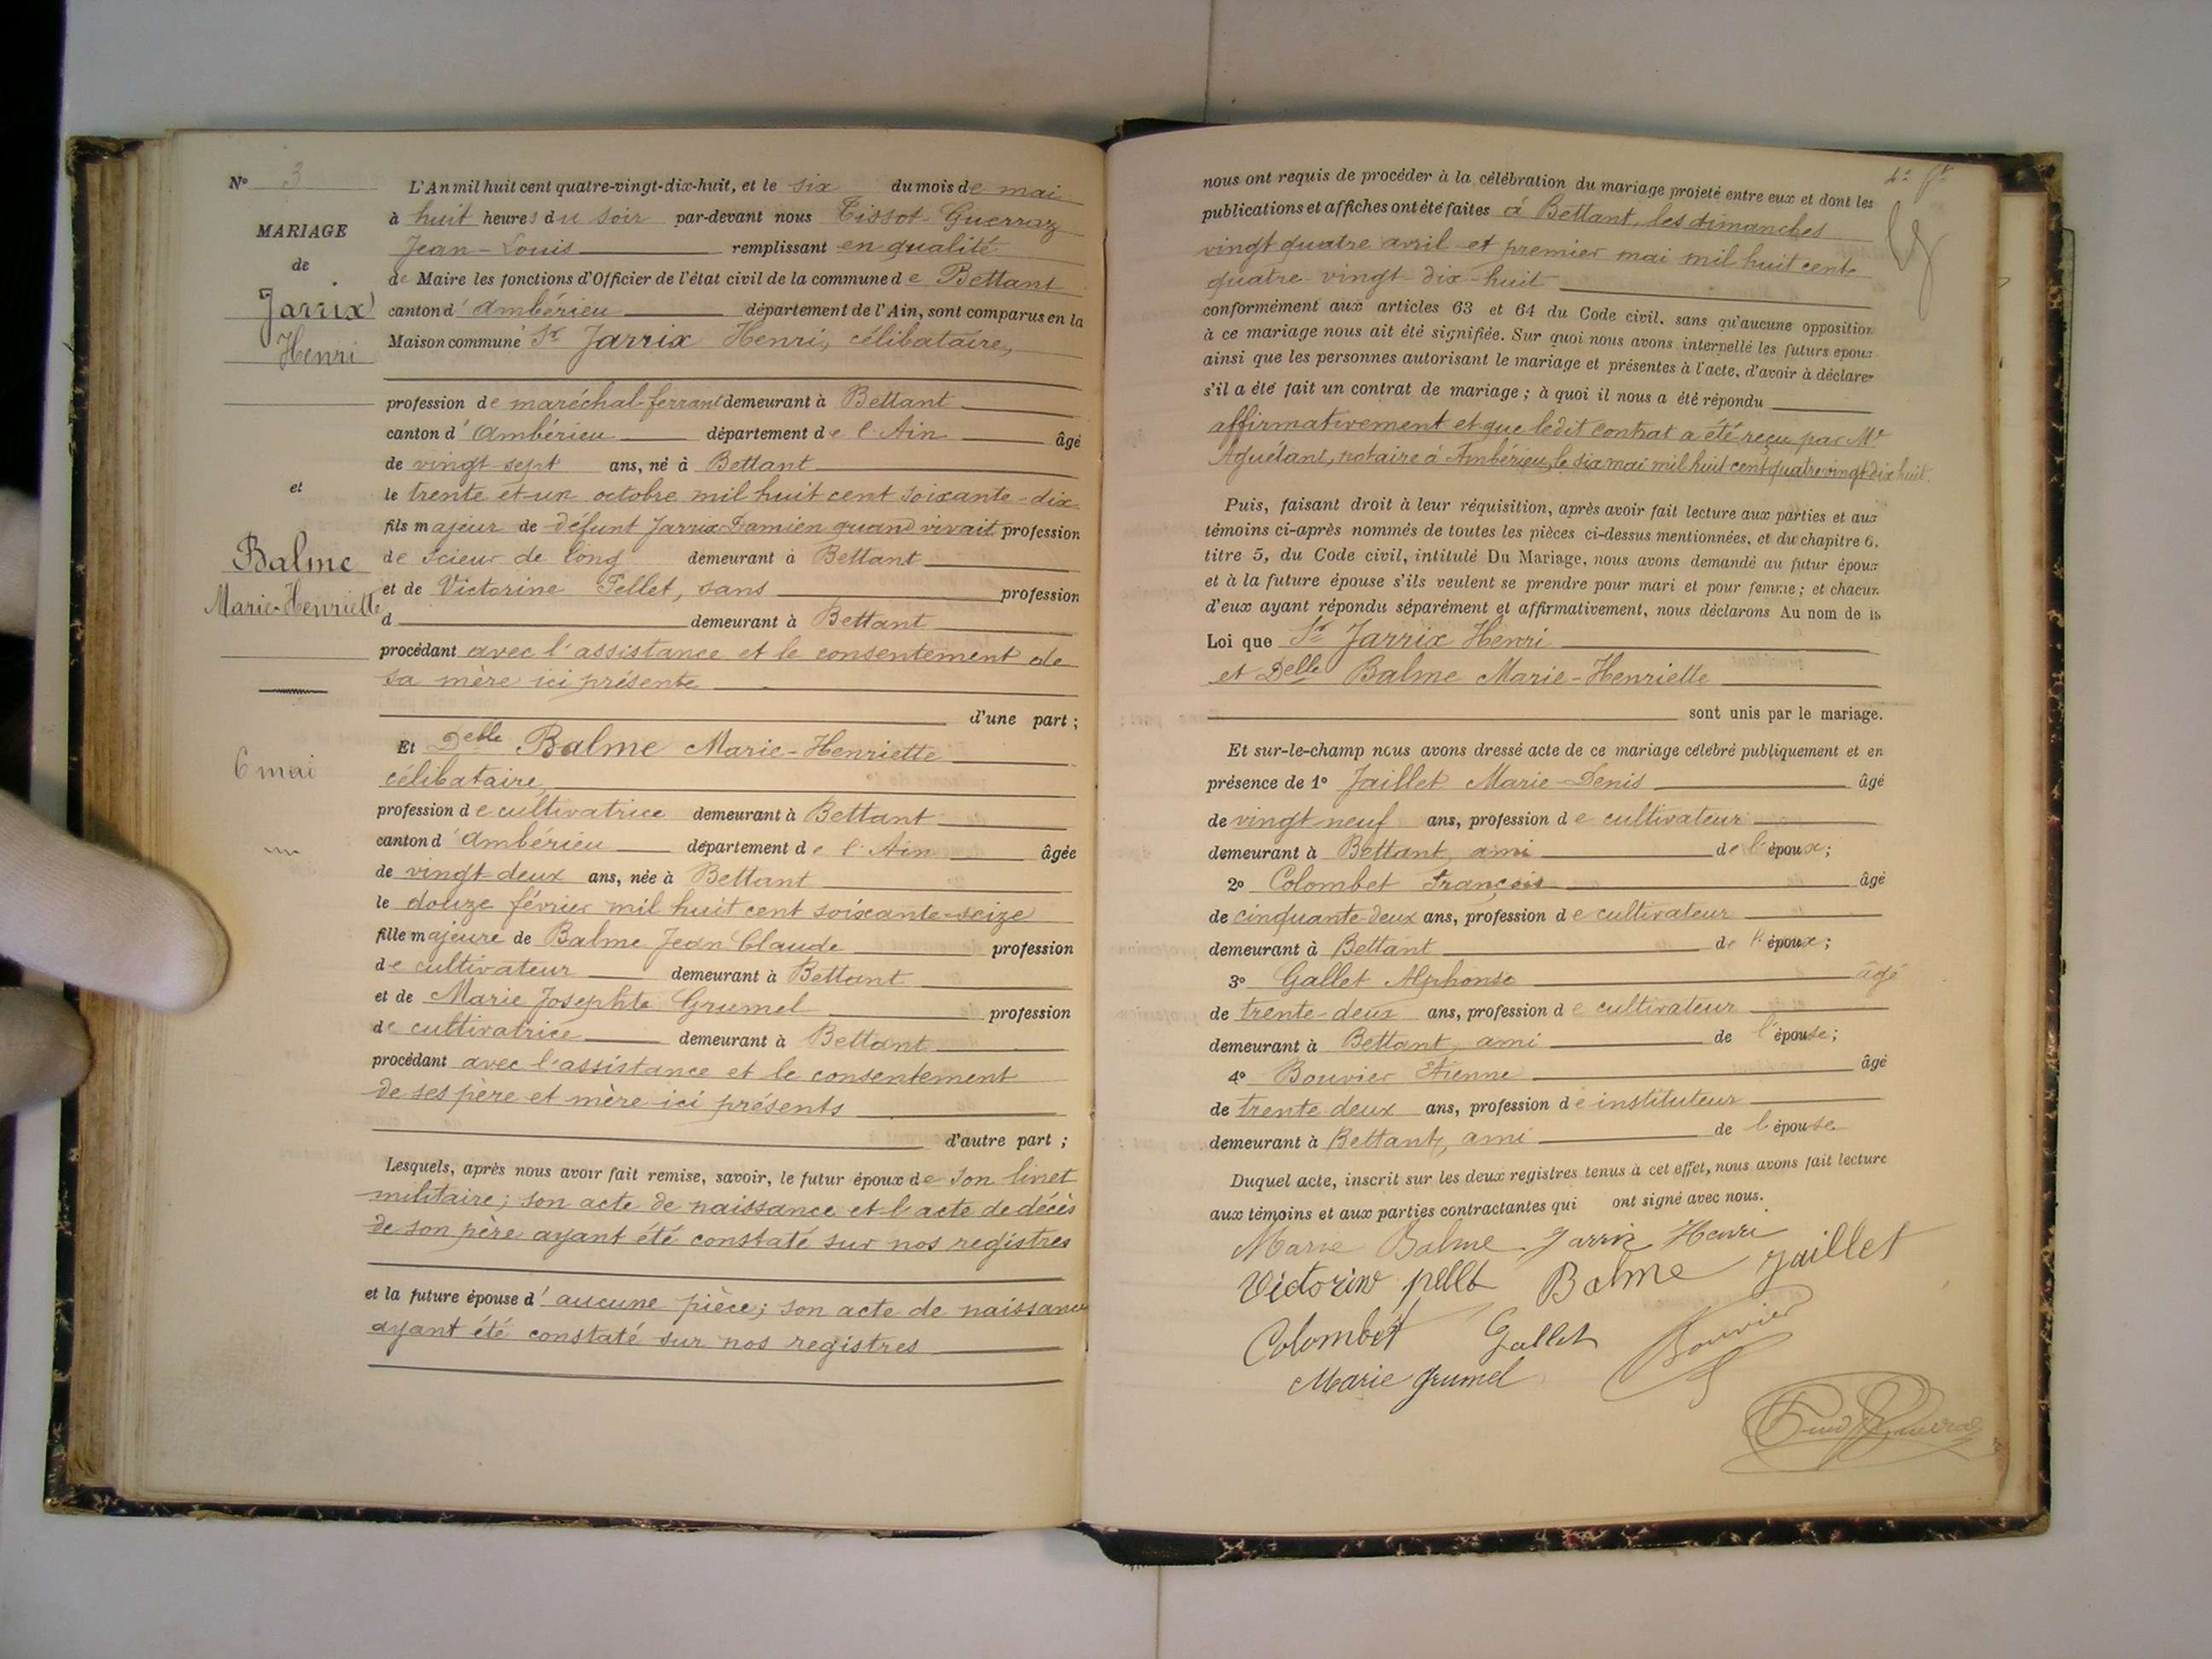 N° 3
MARIAGE
de
Jarrix
Henri
et
Balme
Marie-Henriette
6 mai
L'An mil huit cent quatre-vingt-dix-huit, et le six du mois de mai
à huit heures du soir par-devant nous Tissot-Guerraz
Jean-Louis remplissant en qualité
de Maire les fonctions d'Officier de l'état civil de la commune de Bettant
canton d'Ambérieu département de l'Ain, sont comparus en la
Maison commune Sr Jarrix Henri, célibataire,
profession de maréchal-ferrant demeurant à Bettant
canton d'Ambérieu département de l'Ain âgé
de vingt-sept ans, né à Bettant
le trente et un octobre mil huit cent soixante-dix
fils majeur de défunt Jarrix Damien quand vivait profession
de scieur de long demeurant à Bettant
et de Victorine Pellet, sans profession
d demeurant à Bettant
procédant avec l'assistance et le consentement de
sa mère ici présente
d'une part ;
Et Delle Balme Marie-Henriette
célibataire,
profession de cultivatrice demeurant à Bettant
canton d'Ambérieu département de l'Ain âgée
de vingt-deux ans, née à Bettant
le douze février mil huit cent soixante-seize
fille majeure de Balme Jean Claude profession
de cultivateur demeurant à Bettant
et de Marie Josephte Grumel profession
de cultivatrice demeurant à Bettant
procédant avec l'assistance et le consentement
de ses père et mère ici présents
d'autre part ;
Lesquels, après nous avoir fait remise, savoir, le futur époux de son livret
militaire ; son acte de naissance et l'acte de décès
de son père ayant été constaté sur nos registres
et la future épouse d'aucune pièce ; son acte de naissance
ayant été constaté sur nos registres
nous ont requis de procéder à la célébration du mariage projeté entre eux et dont les
publications et affiches ont été faites à Bettant, les dimanches
vingt quatre avril et premier mai mil huit cent
quatre-vingt-dix-huit
conformément aux articles 63 et 64 du Code civil. sans qu'aucune opposition
à ce mariage nous ait été signifiée. Sur quoi nous avons interpellé les futurs époux
ainsi que les personnes autorisant le mariage et présentes à l'acte, d'avoir à déclarer
s'il a été fait un contrat de mariage ; à quoi il nous a été répondu
affirmativement et que ledit contrat a été reçu par Me
Aguétant, notaire à Ambérieu, le six mai mil huit cent quatre vingt dix huit.
Puis, faisant droit à leur réquisition, après avoir fait lecture aux parties et aux
témoins ci-après nommés de toutes les pièces ci-dessus mentionnées, et du chapitre 6,
titre 5, du Code civil, intitulé Du Mariage, nous avons demandé au futur époux
et à la future épouse s'ils veulent se prendre pour mari et pour femme ; et chacun
d'eux ayant répondu séparément et affirmativement, nous déclarons Au nom de la
Loi que Sr Jarrix Henri
et Delle Balme Marie-Henriette
sont unis par le mariage.
Et sur-le-champ nous avons dressé acte de ce mariage célébré publiquement et en
présence de 1° Jaillet Marie-Denis âgé
de vingt neuf ans, profession de cultivateur
demeurant à Bettant, ami de l'époux ;
2° Colombet François âgé
de cinquante-deux ans, profession de cultivateur
demeurant à Bettant de l'époux ;
3° Gallet Alphonse âgé
de trente-deux ans, profession de cultivateur
demeurant à Bettant, ami de l'épouse ;
4° Bouvier Etienne âgé
de trente deux ans, profession de instituteur
demeurant à Bettant, ami de l'épouse
Duquel acte, inscrit sur les deux registres tenus à cet effet, nous avons fait lecture
aux témoins et aux parties contractantes qui ont signé avec nous.
Marie Balme Jarrix Henri
Victorine pellet Balme Jaillet
Colombet Gallet Bouvier
Marie grumel